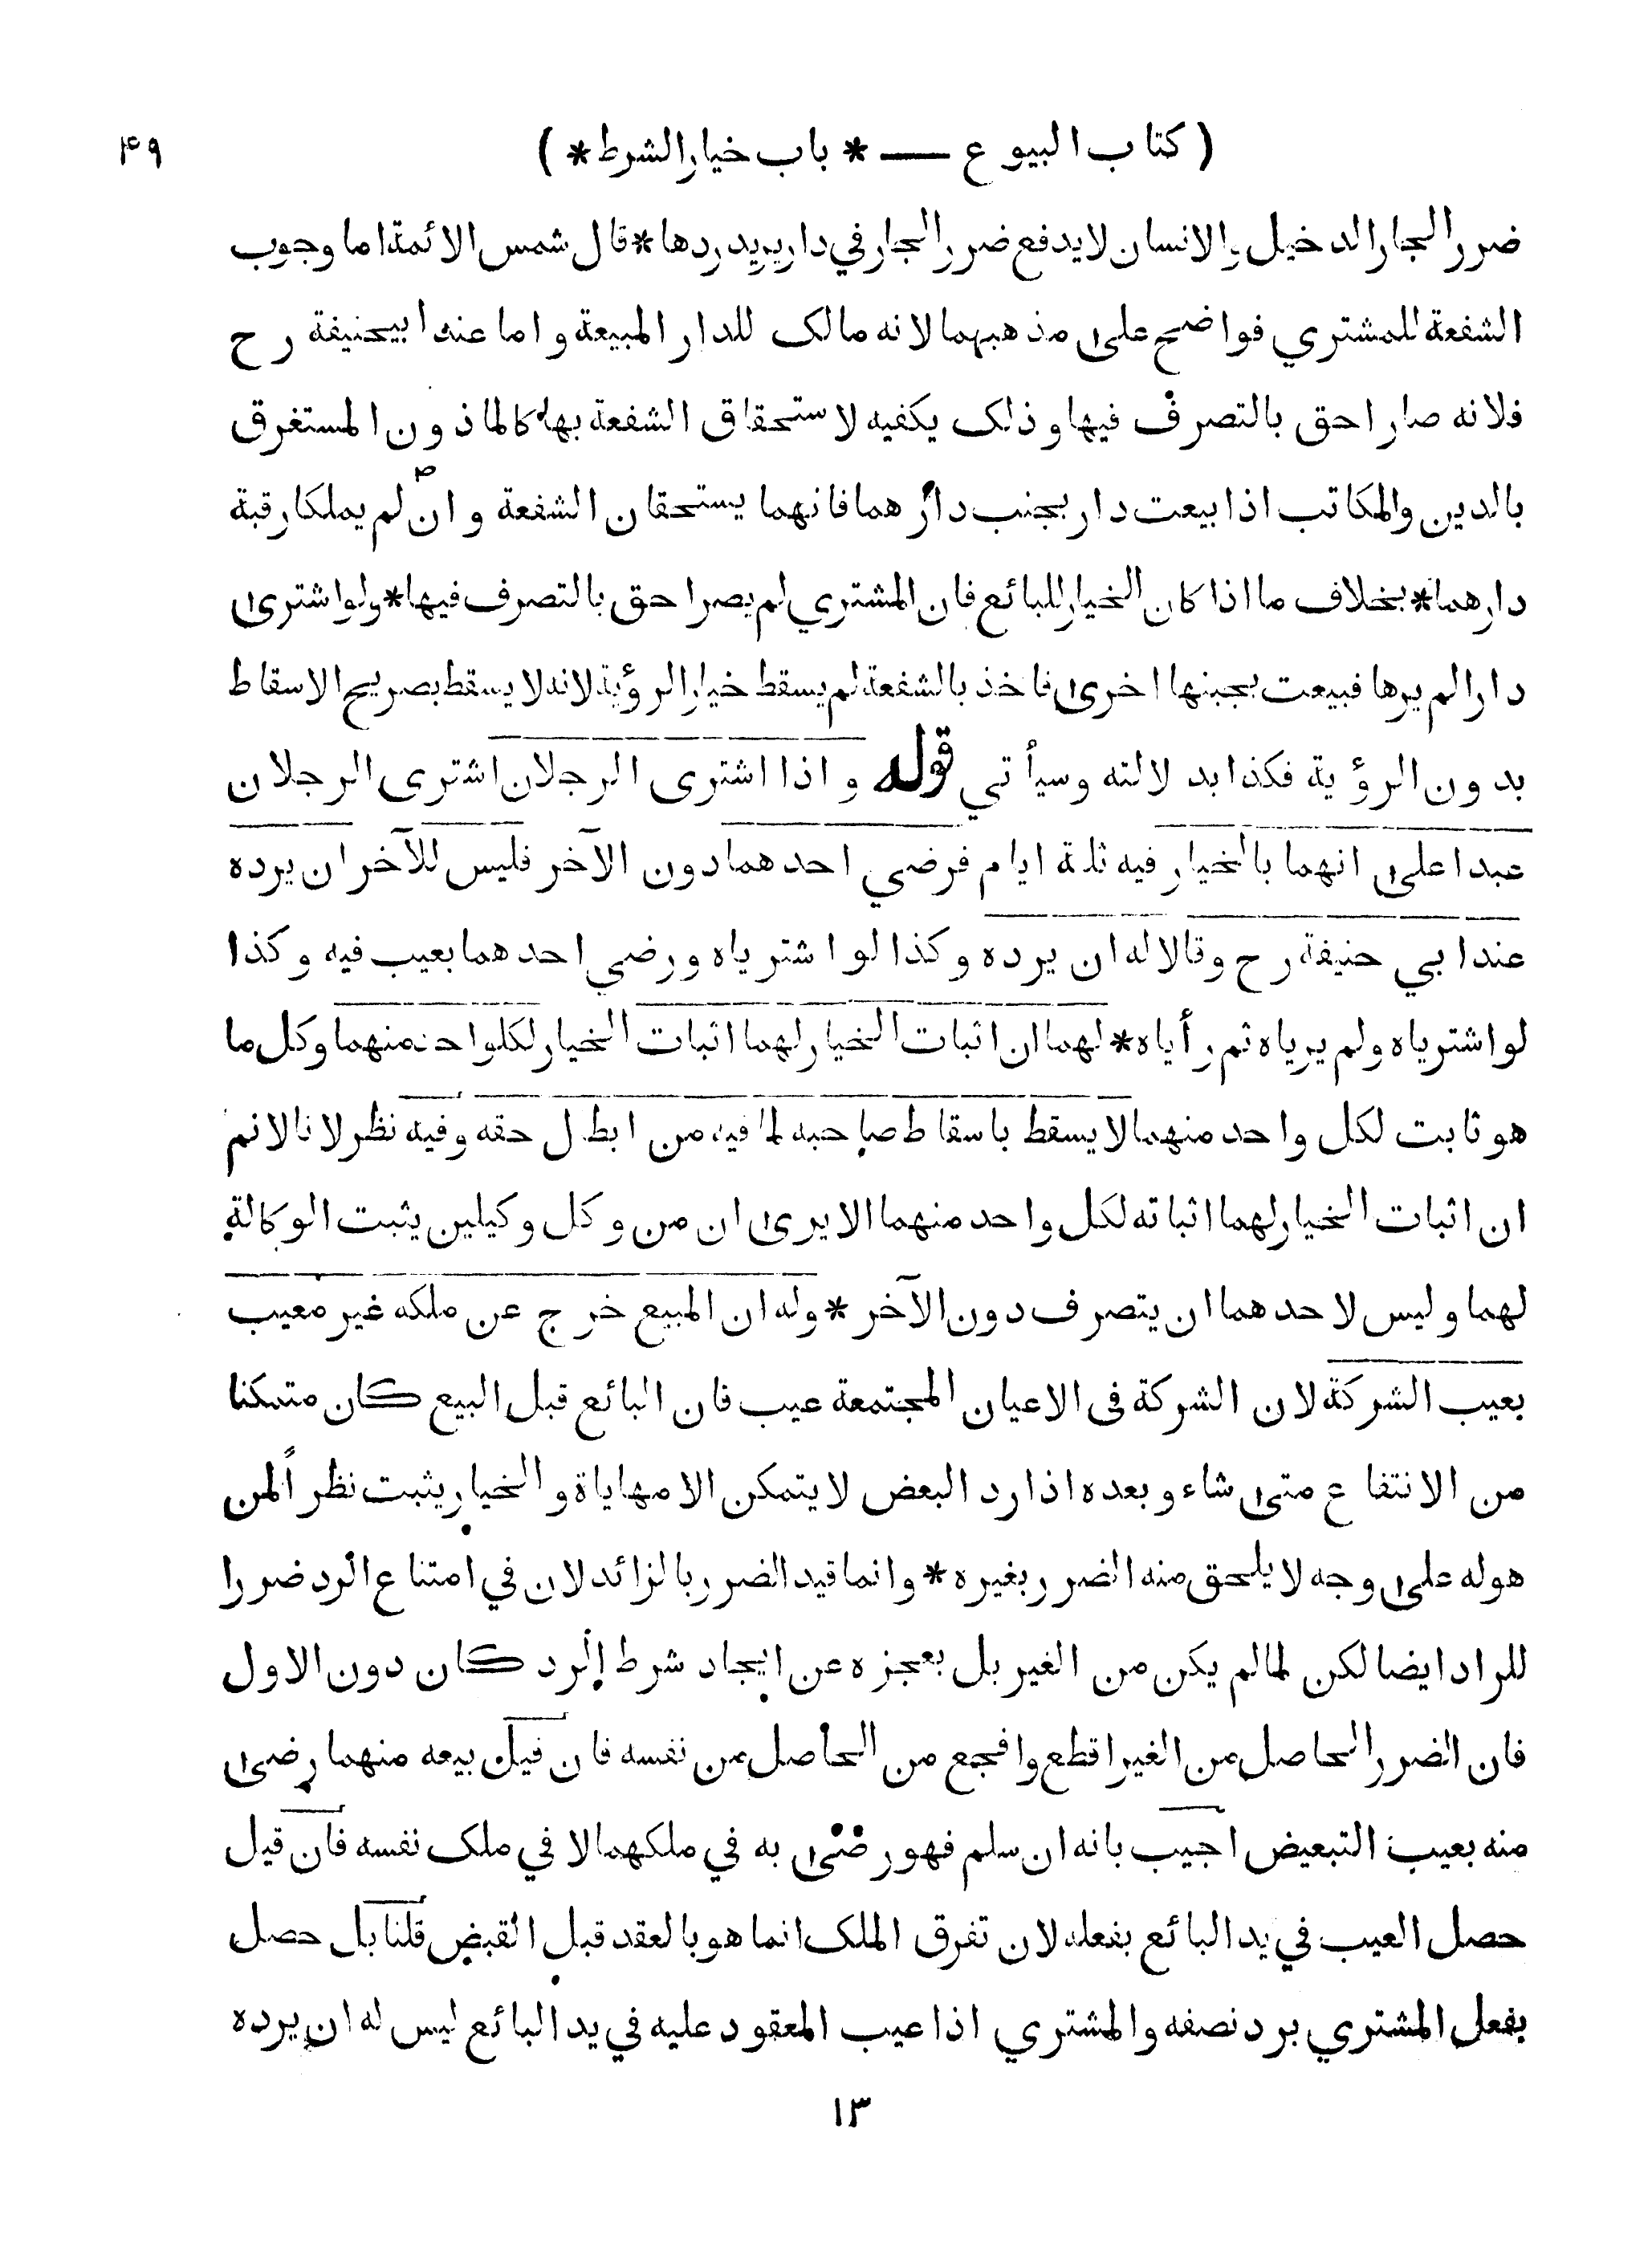 ( كتاب البيوع — * باب خيار الشرط * )
٤٩
ضرر الجار الدخيل والانسان لا يدفع ضرر الجار في دار يريد ردها * قال شمس الائمة اما وجوب
الشفعة للمشتري فواضح على مذهبهما لانه مالك للدار المبيعة واما عند ابيحنيفة رح
فلانه صار احق بالتصرف فيها وذلك يكفيه لاستحقاق الشفعة بها كالماذون المستغرق
بالدين والمكاتب اذا بيعت دار بجنب دارهما فانهما يستحقان الشفعة وان لم يملكا رقبة
دارهما * بخلاف ما اذا كان الخيار للبائع فان المشتري لم يصر احق بالتصرف فيها * ولو اشترى
دارا لم يرها فبيعت بجنبها اخرى فاخذ بالشفعة لم يسقط خيار الرؤية لانه لا يسقط بصريح الاسقاط
بدون الرؤية فكذا بدلالته وسيأتي قوله واذا اشترى الرجلان اشترى الرجلان
عبدا على انهما بالخيار فيه ثلثة ايام فرضي احدهما دون الآخر فليس للآخر ان يرده
عند ابي حنيفة رح وقالا له ان يرده وكذا لو اشترياه ورضي احدهما بعيب فيه وكذا
لو اشترياه ولم يرياه ثم رأياه * لهما ان اثبات الخيار لهما اثبات الخيار لكل واحد منهما وكل ما
هو ثابت لكل واحد منهما لا يسقط باسقاط صاحبه لما فيه من ابطال حقه وفيه نظر لانا لا نم
ان اثبات الخيار لهما اثباته لكل واحد منهما الا يرى ان من وكل وكيلين يثبت الوكالة
لهما وليس لاحدهما ان يتصرف دون الآخر * وله ان المبيع خرج عن ملكه غير معيب
بعيب الشركة لان الشركة فى الاعيان المجتمعة عيب فان البائع قبل البيع كان متمكنا
من الانتفاع متى شاء وبعده اذا رد البعض لا يتمكن الا مهاياة والخيار يثبت نظراً لمن
هوله على وجه لا يلحق منه الضرر بغيره * وانما قيد الضرر بالزائد لان في امتناع الرد ضررا
للراد ايضا لكن لما لم يكن من الغير بل بعجزه عن ايجاد شرط الرد كان دون الاول
فان الضرر الحاصل من الغير اقطع وافجع من الحاصل من نفسه فان قيل بيعه منهما رضى
منه بعيب التبعيض اجيب بانه ان سلم فهو رضى به في ملكهما لا في ملك نفسه فان قيل
حصل العيب في يد البائع بفعله لان تفرق الملك انما هو بالعقد قبل القبض قلنا بل حصل
بفعل المشتري برد نصفه والمشتري اذا عيب المعقود عليه في يد البائع ليس له ان يرده
١٣